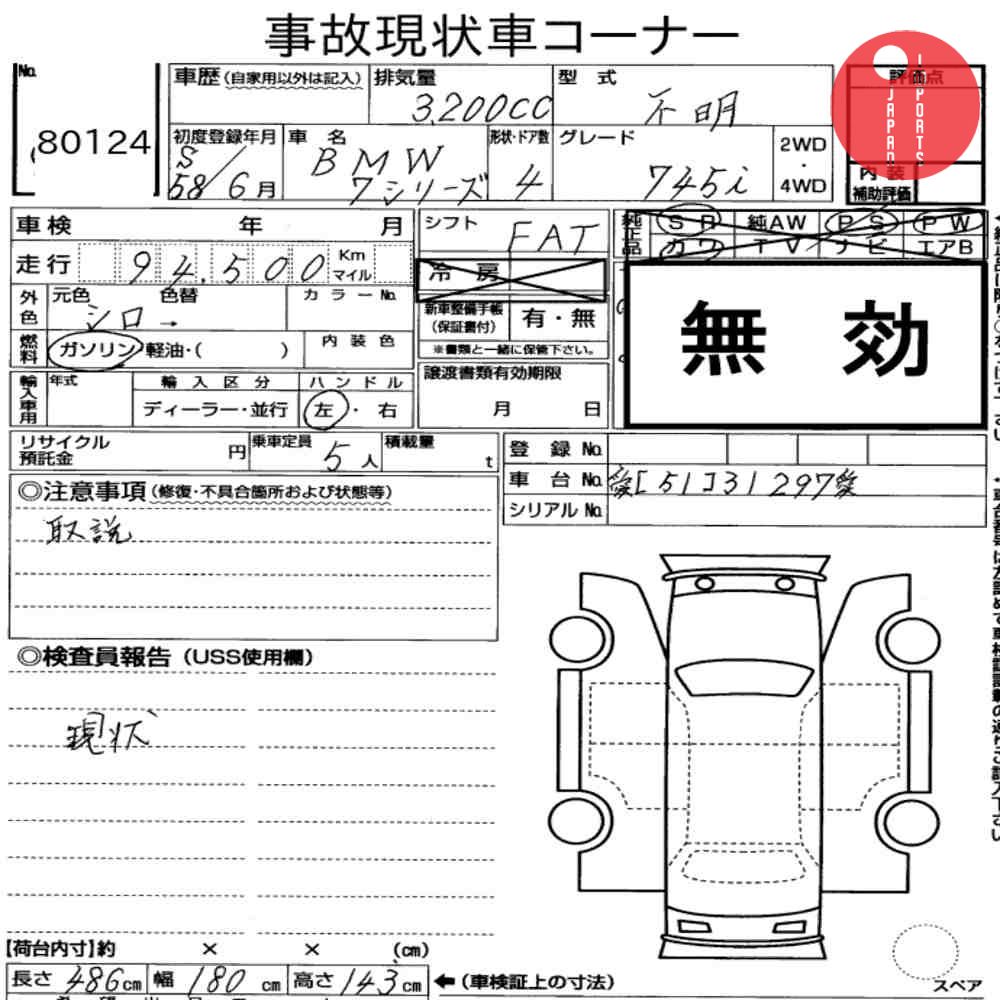 事故現状車コーナー
No.
80124
車歴(自家用以外は記入)
排気量
3,200CC
型 式
不明
評価点
JAPAN
IMPORTS
初度登録年月
S58/6月
車 名
BMW
7シリーズ
形状・ドア数
4
グレード
745i
2WD
・
4WD
内 装
補助評価
車検 年 月
シフト
FAT
純正品
SR 純AW PS PW
カワ TV ナビ エアB
走行 94,500 Km マイル
冷 房
外色
元色 色替
シロ→
カラーNo.
新車整備手帳
(保証書付)
有・無
※書類と一緒に保管下さい。
無 効
燃料
ガソリン/軽油・( )
内装色
輸入車用
年式
輸入区分
ディーラー・並行
ハンドル
左・右
譲渡書類有効期限
月 日
リサイクル
預託金
円
乗車定員
5人
積載量
t
登 録 No.
車 台 No.
[51]31297
シリアル No.
◎注意事項(修復・不具合箇所および状態等)
取説
◎検査員報告(USS使用欄)
現状
【荷台内寸】約 × × (cm)
長さ 486cm 幅 180cm 高さ 143cm
←(車検証上の寸法)
スペア